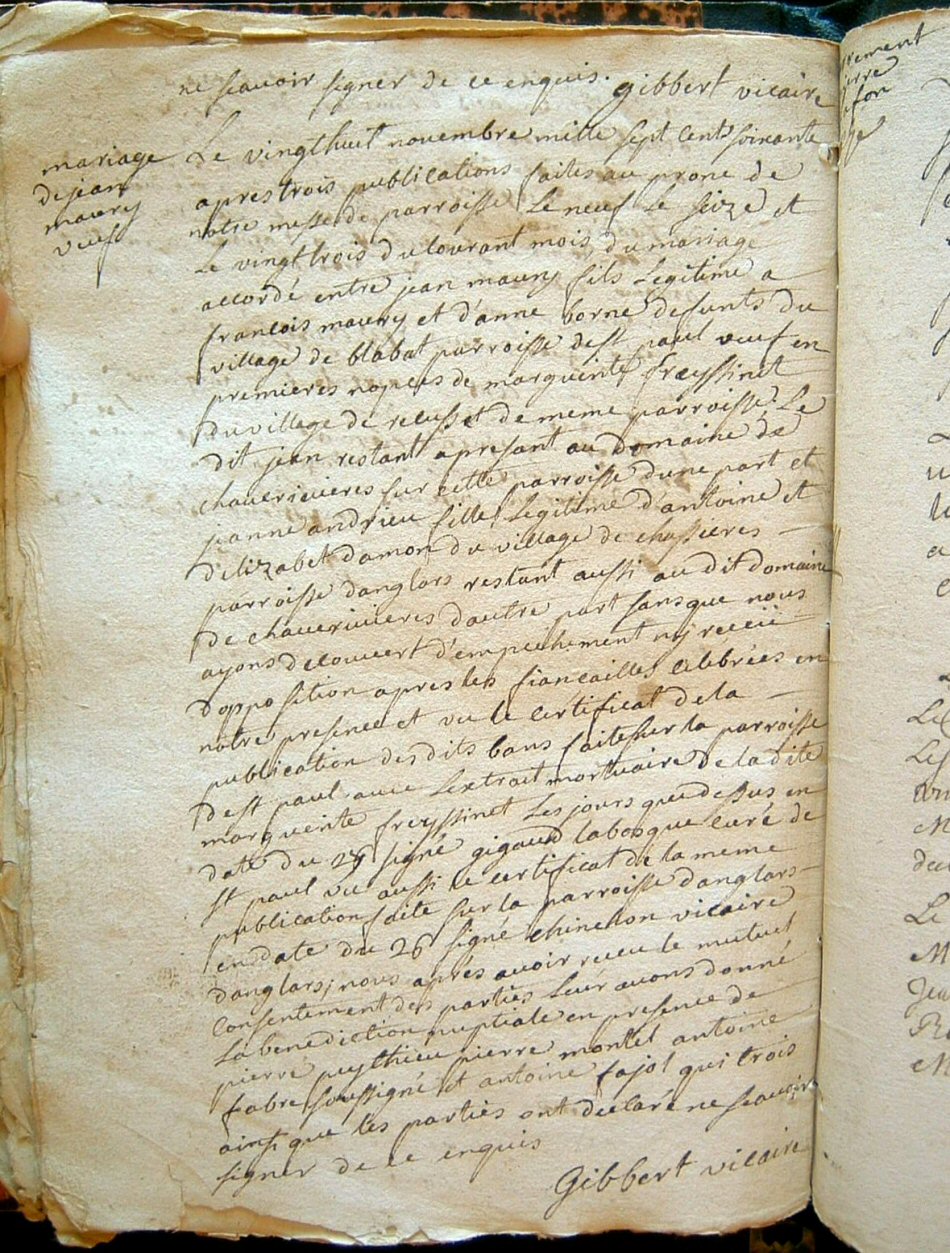 ne scauoir signer de ce enquis. gibbert vicaire
mariage
de jean
maury
veuf
Le vingthuit novembre mille sept cents soixante
apres trois publications faites au prone de
notre messe de parroisse Le neuf Le seize et
Le vingt trois du courant mois, du mariage
accordé entre jean maury fils Legitime a
francois maury et d'anne borne defunts du
village de blabat parroisse de st paul veuf en
premieres nopces de marguerite freyssinet
du village de recusset de meme parroisse, Le
dit jean restant apresant au domaine de
chauerivieres sur cette parroisse dune part et
jeanne andrieu fille Legitime d'antoine et
delizabet damon du village de chassieres
parroisse danglars restant aussi au dit domaine
de chauerivieres dautre part sans que nous
ayons decouvert d'empechement ny receü
dopposition apres les fiancailles celebrées en
notre presence et vu le certificat de la
publication des dits bans faite sur la parroisse
de st paul avec L'extrait mortuaire de la dite
marguerite freyssinet Les jours que dessus en
date du 25 signé gigaud labosque curé de
st paul vu aussi le certificat de la meme
publication faite sur la parroisse danglars
en date du 26 signé chinchon vicaire
danglars; nous aprés avoir receu le mutuel
consentement des parties Leur avons donné
La benediction nuptiale en presence de
pierre puythieu pierre montel antoine
fabre soussigné et antoine fajol qui trois
ainsi que les parties ont declaré ne scauoir
signer de ce enquis
Gibbert vicaire
rement
ierre